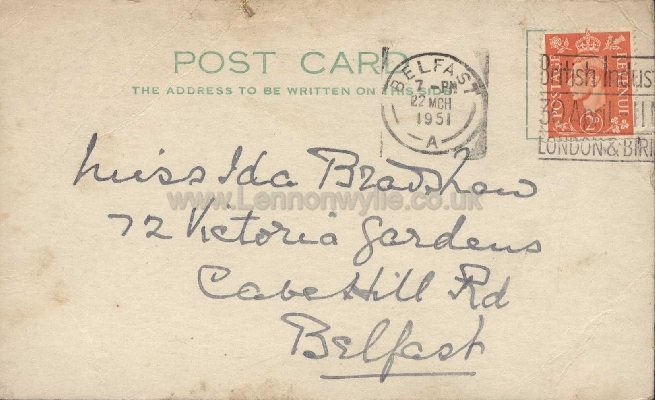 POST CARD
THE ADDRESS TO BE WRITTEN ON THIS SIDE
BELFAST
7 - PM
22 MCH
1951
A
POSTAGE
REVENUE
2D
British Indust
30 April - 11 M
LONDON & BIRI
Miss Ida Bradshaw
www.Lennonwylie.co.uk
72 Victoria Gardens
Cave Hill Rd
Belfast